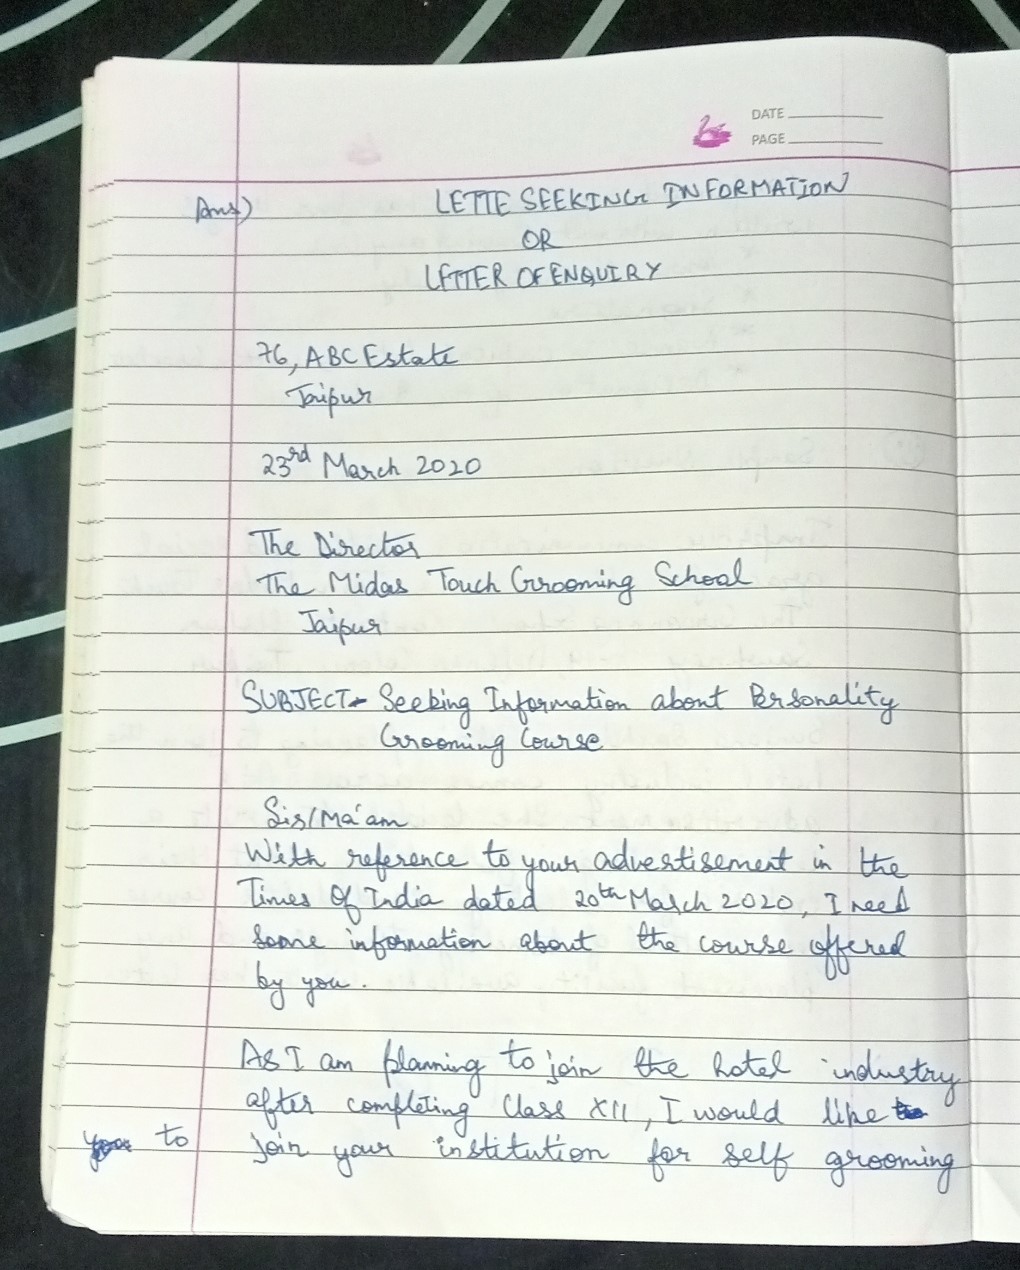 DATE
PAGE
Ans)
LETTE SEEKING INFORMATION
OR
LETTER OF ENQUIRY
76, ABC Estate
Jaipur
23rd March 2020
The Director
The Midas Touch Grooming School
Jaipur
SUBJECT- Seeking Information about Personality
Grooming Course
Sir/Ma'am
With reference to your advertisement in the
Times Of India dated 20th March 2020, I need
some information about the course offered
by you.
As I am planning to join the hotel industry
after completing Class XII, I would like
to join your institution for self grooming